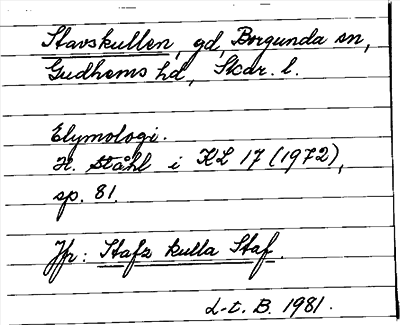 Stavskullen, gd, Borgunda sn,
Gudhems hd, Skar. l.
Etymologi.
H. Ståhl i KL 17 (1972),
sp. 81.
Jfr: Stafz kulla Staf.
L-t. B. 1981.